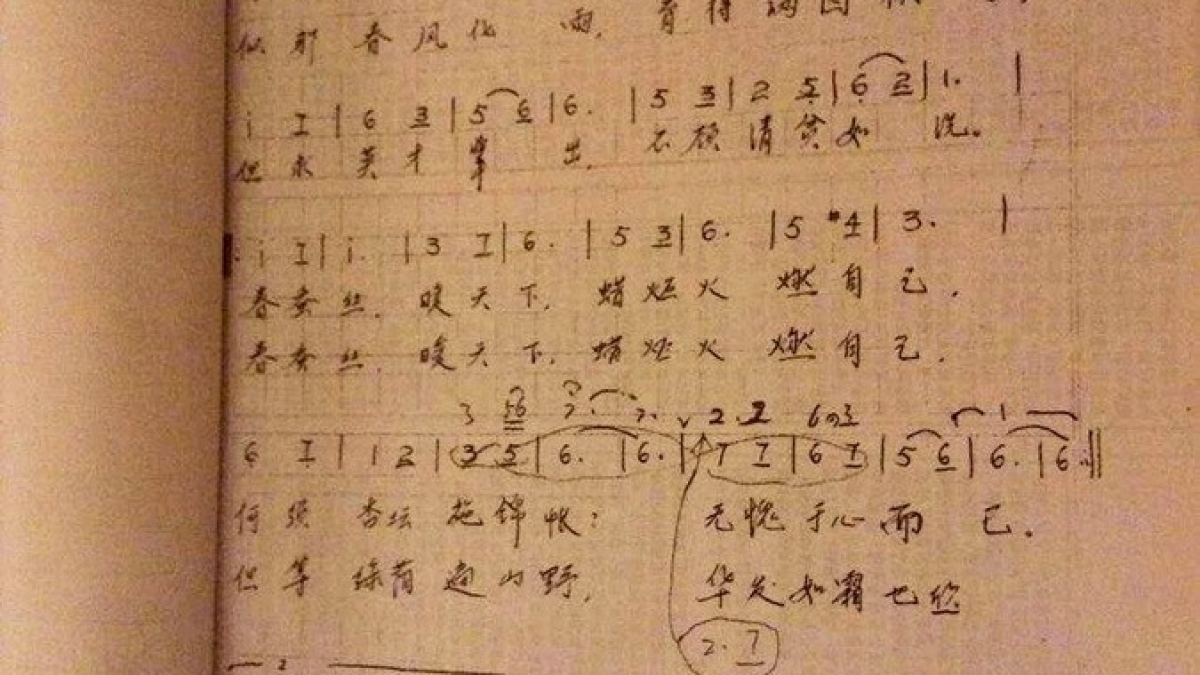 似那春风化雨，育得满园
i 1 | 6 3 | 5 6 | 6. | 5 3 | 2 5 | 6 2 | 1. |
但求英才辈出，不顾清贫如洗。
i 1 | i. | 3 1 | 6. | 5 3 | 6. | 5 #4 | 3. |
春蚕丝，暖天下，蜡炬火燃自己，
春蚕丝，暖天下，蜡炬火燃自己，
3 56 7. 7. 2. 1 6 03 1
6 1 | 1 2 | 3 5 | 6. | 6. | 7 7 | 6 7 | 5 6 | 6. | 6. ||
何须杏坛施锦帐；无愧于心而已。
但等绿荫遍山野，华发如霜也
2. 7
2